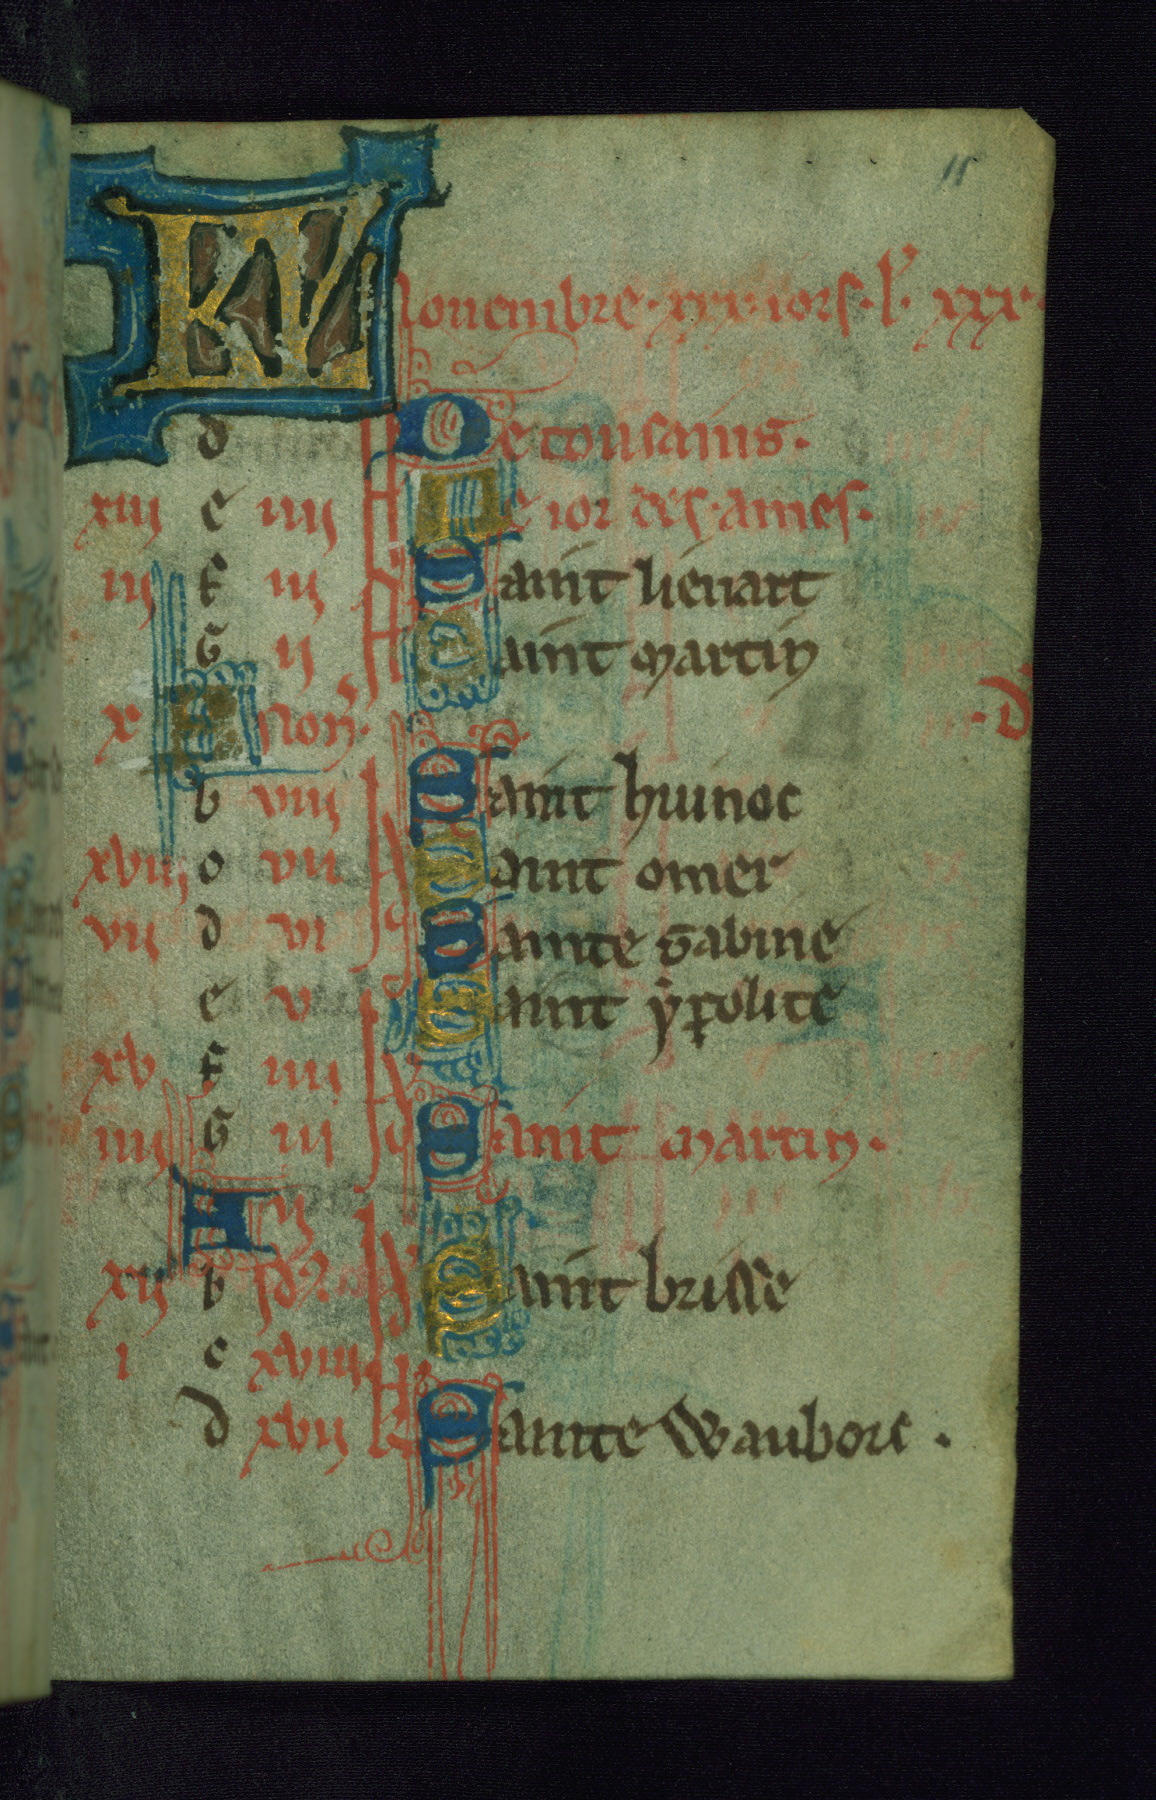 11
KL Nouembre · xxx · iors · l' xxx ·
d De tousains ·
xiij e iiij Le ior des · ames ·
ij f iij saint lienart
G ij saint martin
x A non' · D
b viij saint huinoc
xviij c vii saint omer
vij d vi sainte sabine
e v saint ypolite
xv f iiij
iiij G iij saint martin ·
A ij
xij b saint brisse
i c xviij
d xvij kl sainte Wauborc ·